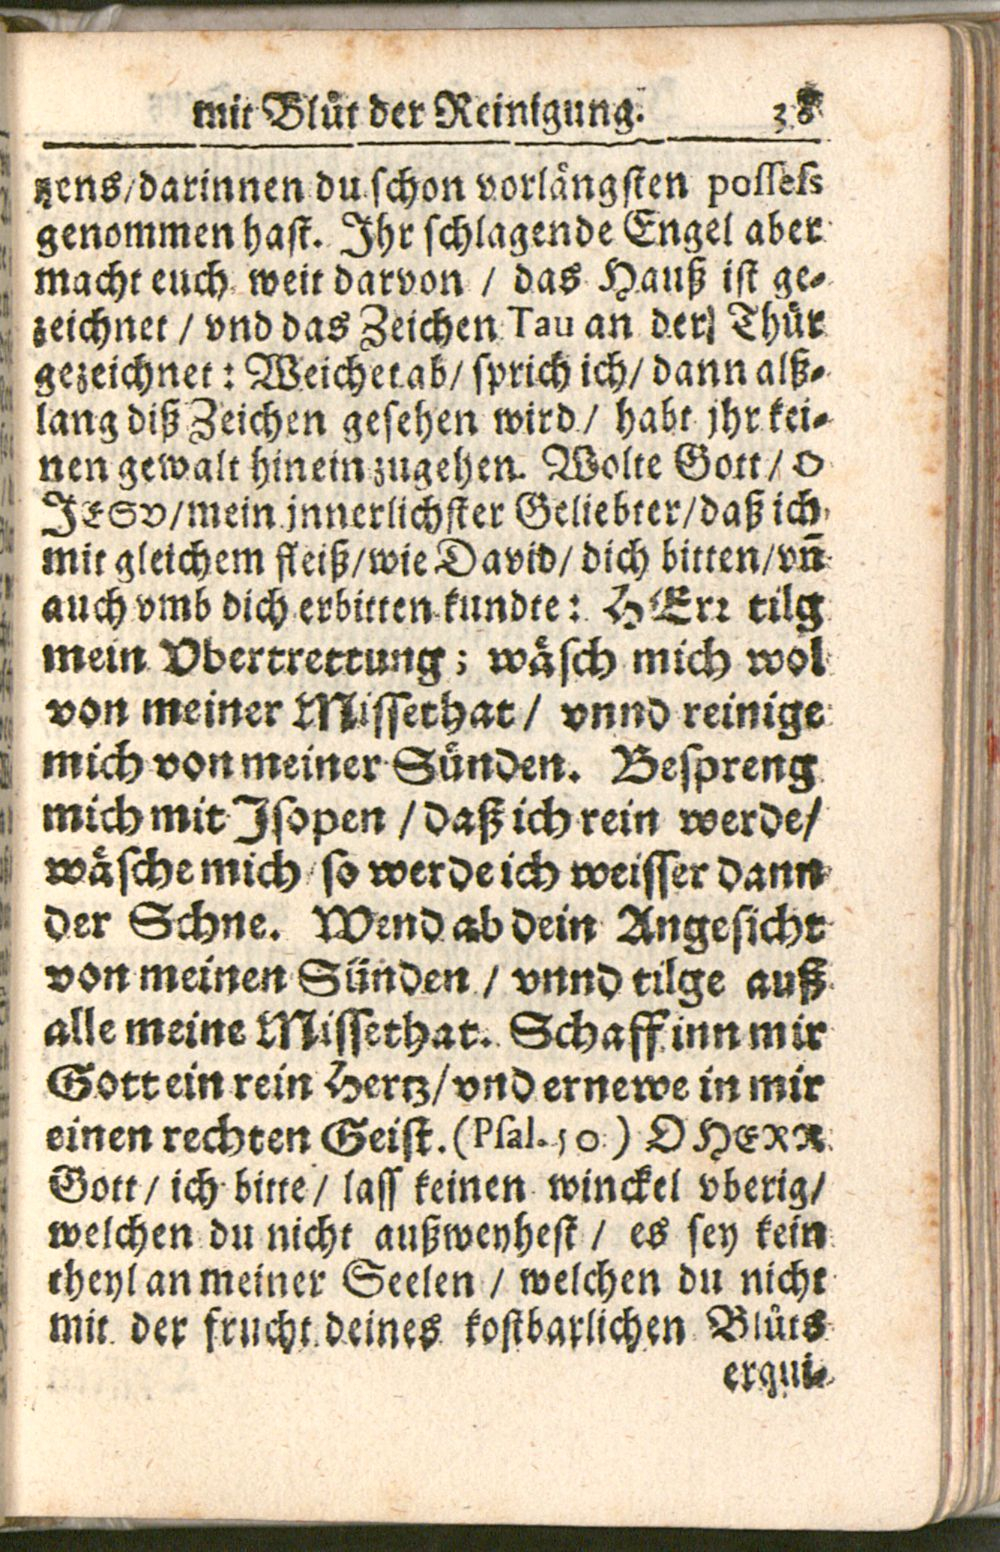 mit Blůt der Reinigung. 38
zens/darinnen du schon vorlängsten possess
genommen hast. Ihr schlagende Engel aber
macht euch weit darvon / das Hauß ist ge-
zeichnet / vnd das Zeichen Tau an der Thür
gezeichnet: Weichet ab/ sprich ich/ dann alß-
lang diß Zeichen gesehen wird / habt jhr kei-
nen gewalt hinein zugehen. Wolte Gott / O
JESV/mein jnnerlichster Geliebter/daß ich
mit gleichem fleiß/wie David/ dich bitten/vn̄
auch vmb dich erbitten kundte: HErr tilg
mein Vbertrettung; wäsch mich wol
von meiner Missethat / vnnd reinige
mich von meiner Sünden. Bespreng
mich mit Isopen / daß ich rein werde/
wäsche mich so werde ich weisser dann
der Schne. Wend ab dein Angesicht
von meinen Sünden / vnnd tilge auß
alle meine Missethat. Schaff inn mir
Gott ein rein Hertz/vnd ernewe in mir
einen rechten Geist. (Psal. 50.) O HERR
Gott/ ich bitte/ lass keinen winckel vberig/
welchen du nicht außweyhest / es sey kein
theyl an meiner Seelen / welchen du nicht
mit der frucht deines kostbarlichen Blůts
erqui-